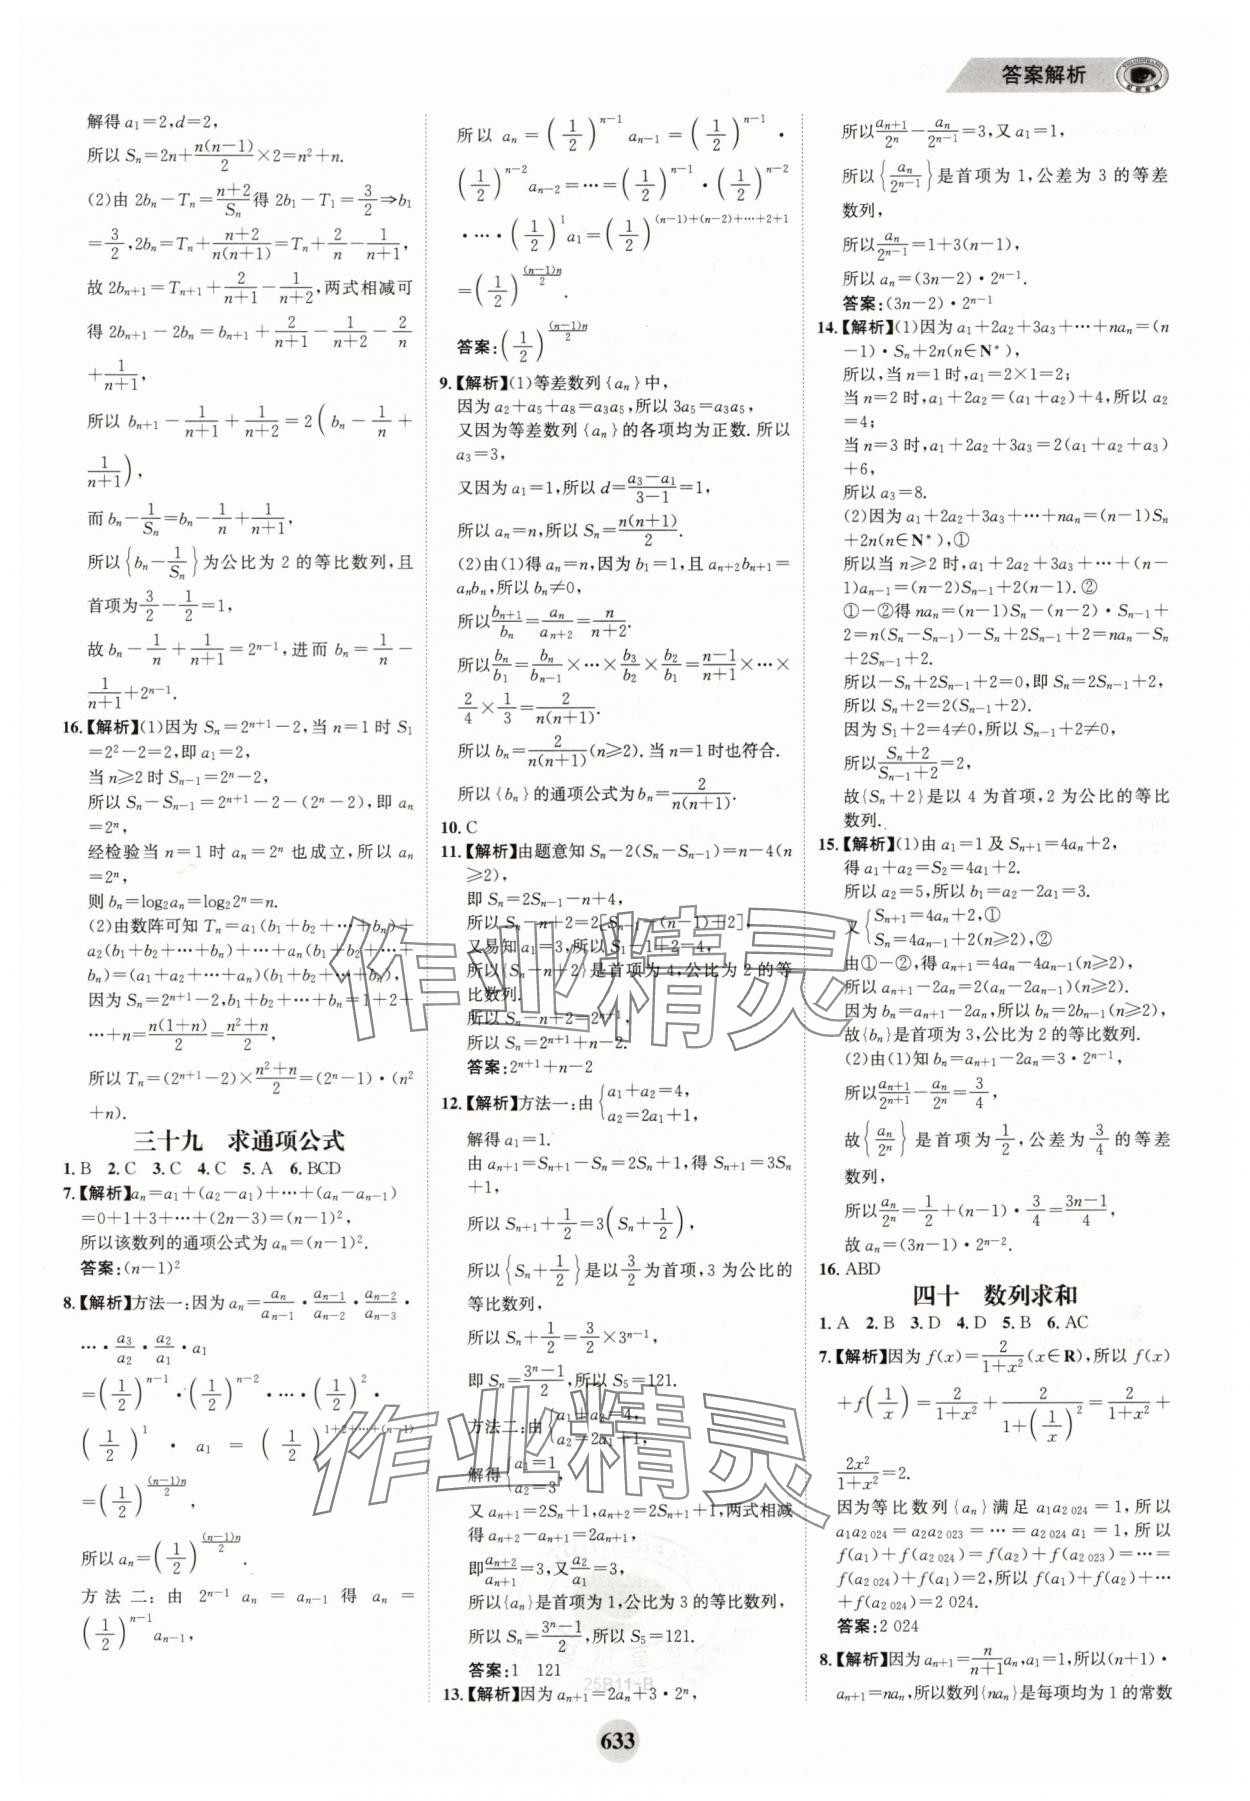 答案解析
解得 a₁=2,d=2,
所以 Sₙ=2n+\frac{n(n-1)}{2}×2=n²+n.
(2)由 2bₙ-Tₙ=\frac{n+2}{Sₙ}得 2b₁-T₁=\frac{3}{2}⇒b₁
=\frac{3}{2},2bₙ=Tₙ+\frac{n+2}{n(n+1)}=Tₙ+\frac{2}{n}-\frac{1}{n+1},
故 2bₙ₊₁=Tₙ₊₁+\frac{2}{n+1}-\frac{1}{n+2},两式相减可
得 2bₙ₊₁-2bₙ=bₙ₊₁+\frac{2}{n+1}-\frac{1}{n+2}-\frac{2}{n}
+\frac{1}{n+1},
所以 bₙ₊₁-\frac{1}{n+1}+\frac{1}{n+2}=2(bₙ-\frac{1}{n}+
\frac{1}{n+1}),
而 bₙ-\frac{1}{Sₙ}=bₙ-\frac{1}{n}+\frac{1}{n+1},
所以{bₙ-\frac{1}{Sₙ}}为公比为 2 的等比数列,且
首项为\frac{3}{2}-\frac{1}{2}=1,
故 bₙ-\frac{1}{n}+\frac{1}{n+1}=2ⁿ⁻¹,进而 bₙ=\frac{1}{n}-
\frac{1}{n+1}+2ⁿ⁻¹.
16.【解析】(1)因为 Sₙ=2ⁿ⁺¹-2,当 n=1 时 S₁
=2²-2=2,即 a₁=2,
当 n≥2 时 Sₙ₋₁=2ⁿ-2,
所以 Sₙ-Sₙ₋₁=2ⁿ⁺¹-2-(2ⁿ-2),即 aₙ
=2ⁿ,
经检验当 n=1 时 aₙ=2ⁿ 也成立,所以 aₙ
=2ⁿ,
则 bₙ=log₂aₙ=log₂2ⁿ=n.
(2)由数阵可知 Tₙ=a₁(b₁+b₂+…+bₙ)+
a₂(b₁+b₂+…+bₙ)+…+aₙ(b₁+b₂+…+
bₙ)=(a₁+a₂+…+aₙ)(b₁+b₂+…+bₙ),
因为 Sₙ=2ⁿ⁺¹-2,b₁+b₂+…+bₙ=1+2+
…+n=\frac{n(1+n)}{2}=\frac{n²+n}{2},
所以 Tₙ=(2ⁿ⁺¹-2)×\frac{n²+n}{2}=(2ⁿ-1)·(n²
+n).
三十九 求通项公式
1. B 2. C 3. C 4. C 5. A 6. BCD
7.【解析】aₙ=a₁+(a₂-a₁)+…+(aₙ-aₙ₋₁)
=0+1+3+…+(2n-3)=(n-1)²,
所以该数列的通项公式为 aₙ=(n-1)².
答案:(n-1)²
8.【解析】方法一:因为 aₙ=\frac{aₙ}{aₙ₋₁}·\frac{aₙ₋₁}{aₙ₋₂}·\frac{aₙ₋₂}{aₙ₋₃}·
…·\frac{a₃}{a₂}·\frac{a₂}{a₁}·a₁
=(\frac{1}{2})ⁿ⁻¹·(\frac{1}{2})ⁿ⁻²·…·(\frac{1}{2})²·
(\frac{1}{2})¹·a₁=(\frac{1}{2})^{1+2+…+(n-1)}
=(\frac{1}{2})^{\frac{(n-1)n}{2}},
所以 aₙ=(\frac{1}{2})^{\frac{(n-1)n}{2}}.
方法二:由 2ⁿ⁻¹aₙ=aₙ₋₁ 得 aₙ=
(\frac{1}{2})ⁿ⁻¹aₙ₋₁,
所以 aₙ=(\frac{1}{2})ⁿ⁻¹aₙ₋₁=(\frac{1}{2})ⁿ⁻¹·
(\frac{1}{2})ⁿ⁻²aₙ₋₂=…=(\frac{1}{2})ⁿ⁻¹·(\frac{1}{2})ⁿ⁻²
·…·(\frac{1}{2})¹a₁=(\frac{1}{2})^{(n-1)+(n-2)+…+2+1}
=(\frac{1}{2})^{\frac{(n-1)n}{2}}.
答案:(\frac{1}{2})^{\frac{(n-1)n}{2}}
9.【解析】(1)等差数列{aₙ}中,
因为 a₂+a₅+a₈=a₃a₅,所以 3a₅=a₃a₅,
又因为等差数列{aₙ}的各项均为正数.所以
a₃=3,
又因为 a₁=1,所以 d=\frac{a₃-a₁}{3-1}=1,
所以 aₙ=n,所以 Sₙ=\frac{n(n+1)}{2}.
(2)由(1)得 aₙ=n,因为 b₁=1,且 aₙ₊₂bₙ₊₁=
aₙbₙ,所以 bₙ≠0,
所以\frac{bₙ₊₁}{bₙ}=\frac{aₙ}{aₙ₊₂}=\frac{n}{n+2}.
所以\frac{bₙ}{b₁}=\frac{bₙ}{bₙ₋₁}×…×\frac{b₃}{b₂}×\frac{b₂}{b₁}=\frac{n-1}{n+1}×…×
\frac{2}{4}×\frac{1}{3}=\frac{2}{n(n+1)}.
所以 bₙ=\frac{2}{n(n+1)}(n≥2).当 n=1 时也符合.
所以{bₙ}的通项公式为 bₙ=\frac{2}{n(n+1)}.
10. C
11.【解析】由题意知 Sₙ-2(Sₙ-Sₙ₋₁)=n-4(n
≥2),
即 Sₙ=2Sₙ₋₁-n+4,
所以 Sₙ-n+2=2[Sₙ₋₁-(n-1)+2],
又易知 a₁=3,所以 S₁-1+2=4,
所以{Sₙ-n+2}是首项为 4,公比为 2 的等
比数列.
所以 Sₙ-n+2=2ⁿ⁺¹,
所以 Sₙ=2ⁿ⁺¹+n-2.
答案:2ⁿ⁺¹+n-2
12.【解析】方法一:由{a₁+a₂=4,
a₂=2a₁+1,
解得 a₁=1.
由 aₙ₊₁=Sₙ₊₁-Sₙ=2Sₙ+1,得 Sₙ₊₁=3Sₙ
+1,
所以 Sₙ₊₁+\frac{1}{2}=3(Sₙ+\frac{1}{2}),
所以{Sₙ+\frac{1}{2}}是以\frac{3}{2}为首项,3 为公比的
等比数列,
所以 Sₙ+\frac{1}{2}=\frac{3}{2}×3ⁿ⁻¹,
即 Sₙ=\frac{3ⁿ-1}{2},所以 S₅=121.
方法二:由{a₁+a₂=4,
a₂=2a₁+1,
解得{a₁=1
a₂=3,
又 aₙ₊₁=2Sₙ+1,aₙ₊₂=2Sₙ₊₁+1,两式相减
得 aₙ₊₂-aₙ₊₁=2aₙ₊₁,
即\frac{aₙ₊₂}{aₙ₊₁}=3,又\frac{a₂}{a₁}=3,
所以{aₙ}是首项为 1,公比为 3 的等比数列,
所以 Sₙ=\frac{3ⁿ-1}{2},所以 S₅=121.
答案:1 121
13.【解析】因为 aₙ₊₁=2aₙ+3·2ⁿ,
所以\frac{aₙ₊₁}{2ⁿ}-\frac{aₙ}{2ⁿ⁻¹}=3,又 a₁=1,
所以{\frac{aₙ}{2ⁿ⁻¹}}是首项为 1,公差为 3 的等差
数列,
所以\frac{aₙ}{2ⁿ⁻¹}=1+3(n-1),
所以 aₙ=(3n-2)·2ⁿ⁻¹.
答案:(3n-2)·2ⁿ⁻¹
14.【解析】(1)因为 a₁+2a₂+3a₃+…+naₙ=(n
-1)·Sₙ+2n(n∈N*),
所以,当 n=1 时,a₁=2×1=2;
当 n=2 时,a₁+2a₂=(a₁+a₂)+4,所以 a₂
=4;
当 n=3 时,a₁+2a₂+3a₃=2(a₁+a₂+a₃)
+6,
所以 a₃=8.
(2)因为 a₁+2a₂+3a₃+…+naₙ=(n-1)Sₙ
+2n(n∈N*),①
所以当 n≥2 时,a₁+2a₂+3a₃+…+(n-
1)aₙ₋₁=(n-2)Sₙ₋₁+2(n-1).②
①-②得 naₙ=(n-1)Sₙ-(n-2)·Sₙ₋₁+
2=n(Sₙ-Sₙ₋₁)-Sₙ+2Sₙ₋₁+2=naₙ-Sₙ
+2Sₙ₋₁+2.
所以-Sₙ+2Sₙ₋₁+2=0,即 Sₙ=2Sₙ₋₁+2,
所以 Sₙ+2=2(Sₙ₋₁+2).
因为 S₁+2=4≠0,所以 Sₙ₋₁+2≠0,
所以\frac{Sₙ+2}{Sₙ₋₁+2}=2,
故{Sₙ+2}是以 4 为首项,2 为公比的等比
数列.
15.【解析】(1)由 a₁=1 及 Sₙ₊₁=4aₙ+2,
得 a₁+a₂=S₂=4a₁+2.
所以 a₂=5,所以 b₁=a₂-2a₁=3.
又{Sₙ₊₁=4aₙ+2,①
Sₙ=4aₙ₋₁+2(n≥2),②
由①-②,得 aₙ₊₁=4aₙ-4aₙ₋₁(n≥2).
所以 aₙ₊₁-2aₙ=2(aₙ-2aₙ₋₁)(n≥2).
因为 bₙ=aₙ₊₁-2aₙ,所以 bₙ=2bₙ₋₁(n≥2),
故{bₙ}是首项为 3,公比为 2 的等比数列.
(2)由(1)知 bₙ=aₙ₊₁-2aₙ=3·2ⁿ⁻¹,
所以\frac{aₙ₊₁}{2ⁿ⁺¹}-\frac{aₙ}{2ⁿ}=\frac{3}{4},
故{\frac{aₙ}{2ⁿ}}是首项为\frac{1}{2},公差为\frac{3}{4}的等差
数列,
所以\frac{aₙ}{2ⁿ}=\frac{1}{2}+(n-1)·\frac{3}{4}=\frac{3n-1}{4},
故 aₙ=(3n-1)·2ⁿ⁻².
16. ABD
四十 数列求和
1. A 2. B 3. D 4. D 5. B 6. AC
7.【解析】因为 f(x)=\frac{2}{1+x²}(x∈R),所以 f(x)
+f(\frac{1}{x})=\frac{2}{1+x²}+\frac{2}{1+(\frac{1}{x})²}=\frac{2}{1+x²}+
\frac{2x²}{1+x²}=2.
因为等比数列{aₙ}满足 a₁a₂₀₂₄=1,所以
a₁a₂₀₂₄=a₂a₂₀₂₃=…=a₂₀₂₄a₁=1,所以
f(a₁)+f(a₂₀₂₄)=f(a₂)+f(a₂₀₂₃)=…=
f(a₂₀₂₄)+f(a₁)=2,所以 f(a₁)+f(a₂)+…
+f(a₂₀₂₄)=2 024.
答案:2 024
8.【解析】因为 aₙ₊₁=\frac{n}{n+1}aₙ,a₁=1,所以(n+1)·
aₙ₊₁=naₙ,所以数列{naₙ}是每项均为 1 的常数
作业精灵
作业精灵
25B11-B
633